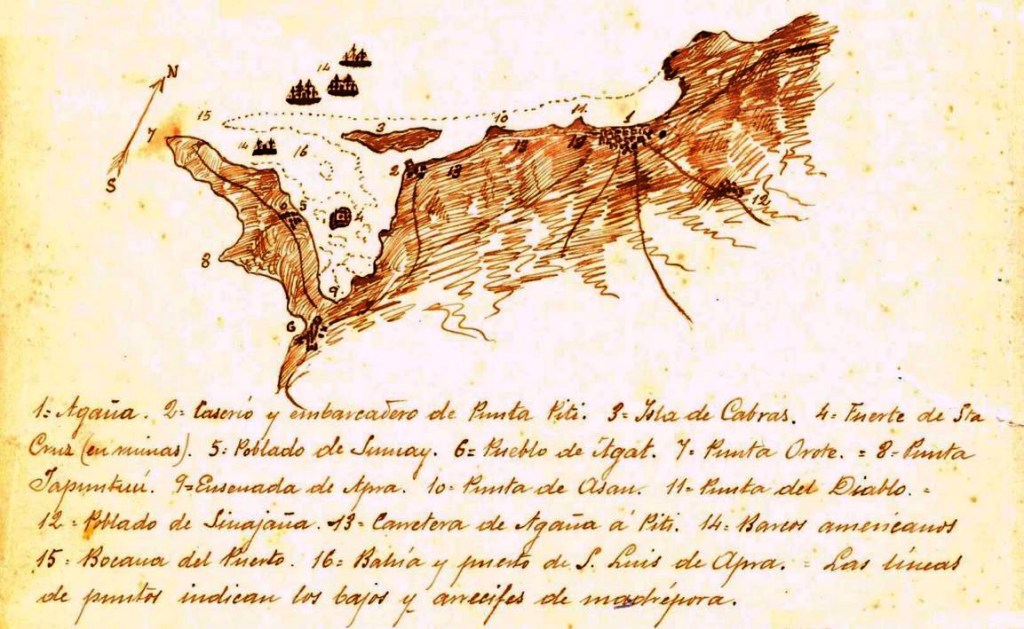 N
S
14
15
14
16
7
3
10
11
1
2
13
13
12
5
6
4
8
9
6
1= Agaña. 2= Caserió y embarcadero de Punta Piti. 3= Isla de Cabras. 4= Fuerte de Sta
Cruz (en ruinas). 5= Poblado de Sumay. 6= Pueblo de Agat. 7= Punta Orote. = 8= Punta
9= Ensenada de Apra. 10= Punta de Asan. 11= Punta del Diablo. =
12= Poblado de Sinajaña. 13= Carretera de Agaña á Piti. 14= Barcos americanos
15= Bocana del Puerto. 16= Bahía y puerto de S. Luis de Apra. = Las líneas
de puntos indican los bajos y arrecifes de madrépora.